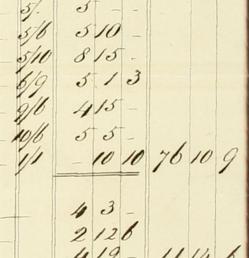 5/. 5 -
5/6 5 10 -
5/10 8 15 -
6/9 5 1 3
9/6 4 15 -
10/6 5 5 -
1/1 - 10 10 76 10 9
4 3 -
2 12 6
4 19 - 11 14 6